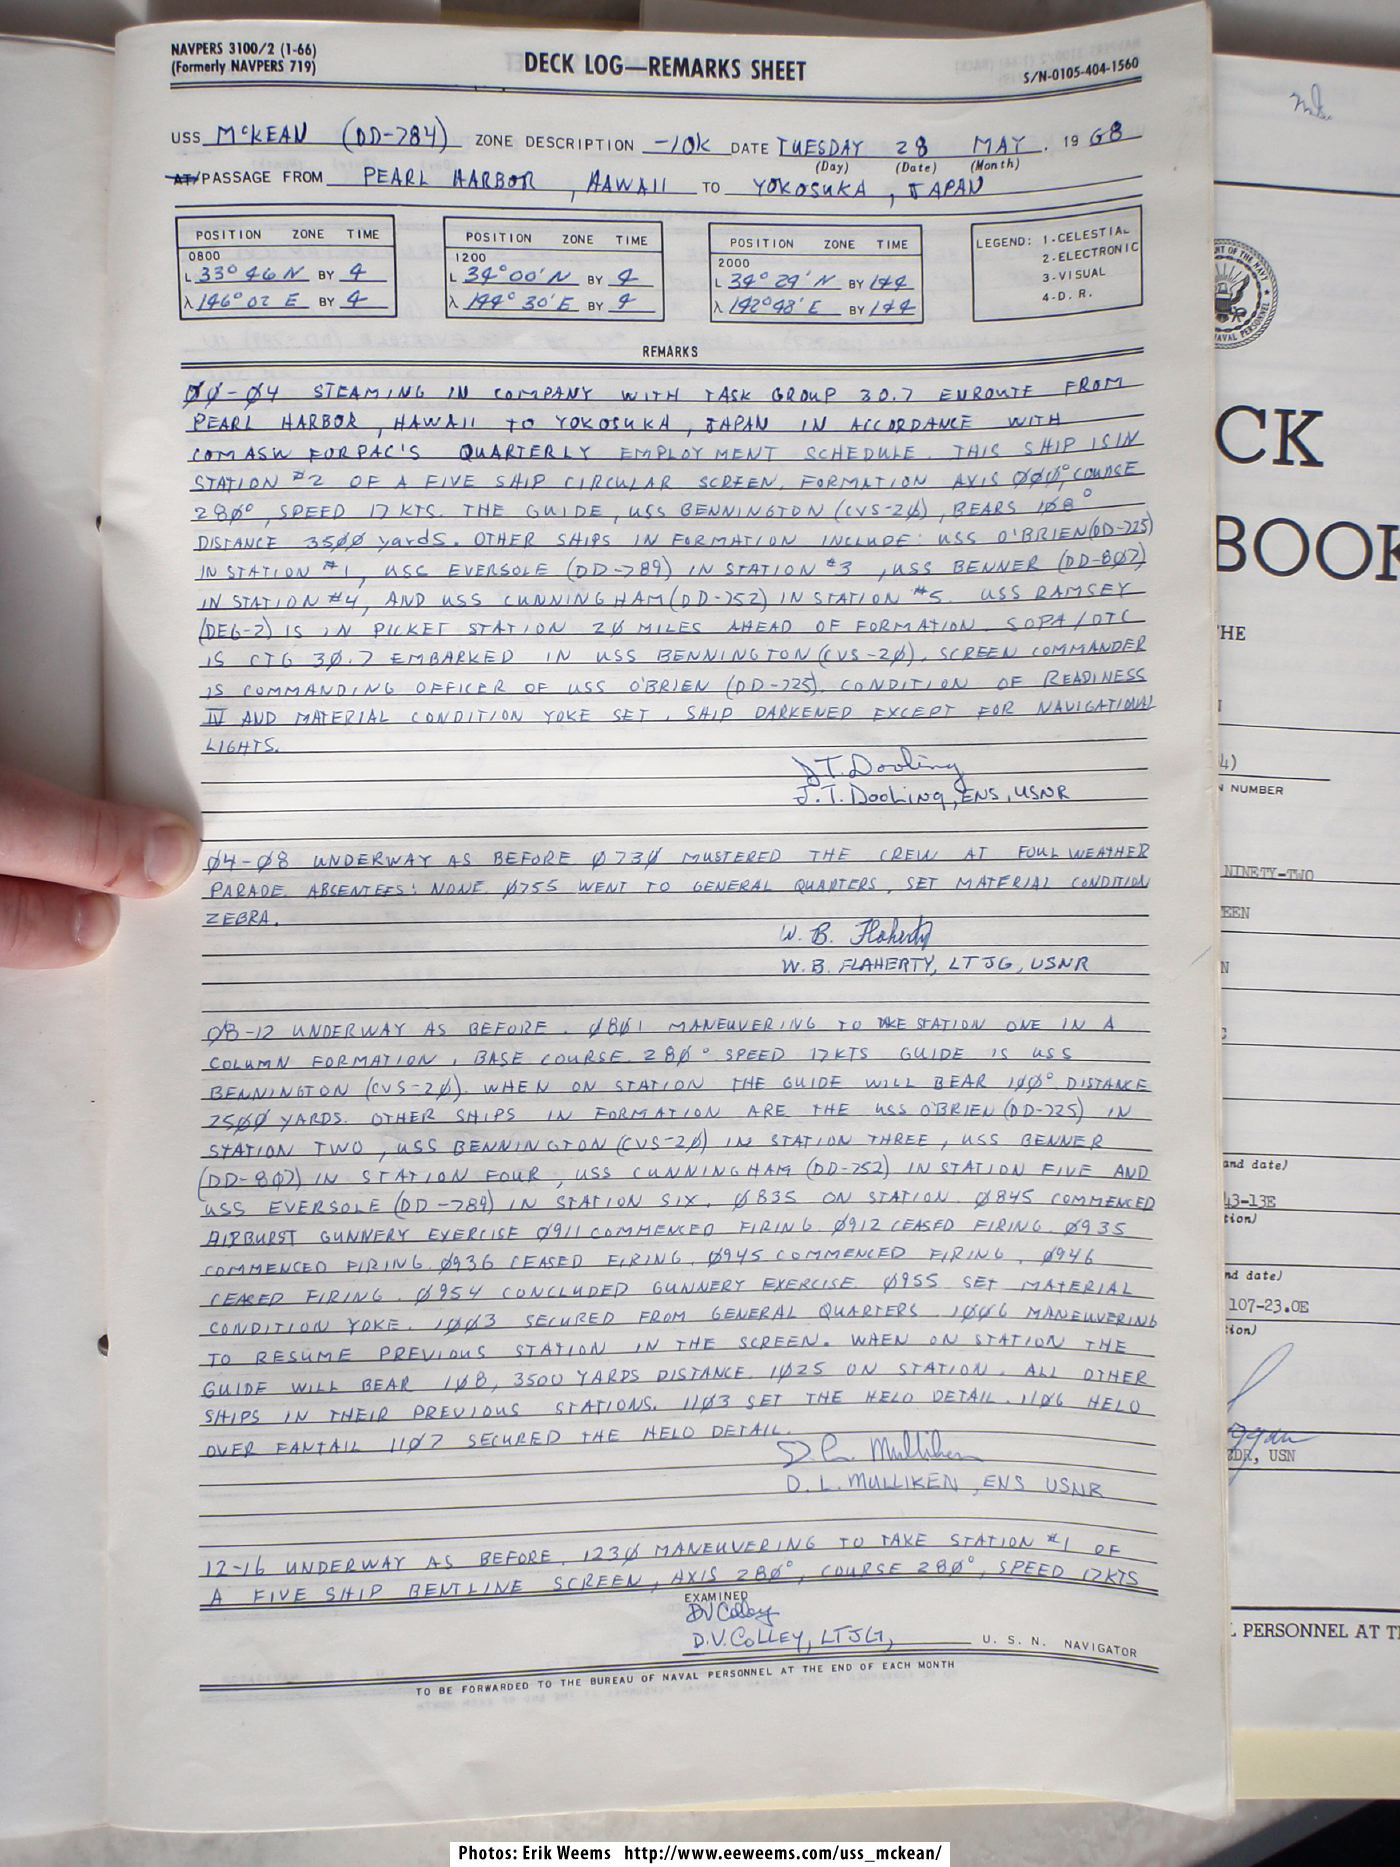 NAVPERS 3100/2 (1-66)
(Formerly NAVPERS 719)
DECK LOG—REMARKS SHEET
S/N-0105-404-1560
USS McKEAN (DD-784) ZONE DESCRIPTION -10K DATE TUESDAY 28 MAY, 1968
(Day) (Date) (Month)
AT/PASSAGE FROM PEARL HARBOR, HAWAII TO YOKOSUKA, JAPAN
POSITION ZONE TIME
0800
L 33° 46 N BY 4
λ 146° 02 E BY 4
POSITION ZONE TIME
1200
L 34° 00' N BY 4
λ 144° 30' E BY 4
POSITION ZONE TIME
2000
L 34° 29' N BY 1+4
λ 142° 48' E BY 1+4
LEGEND: 1-CELESTIAL
2-ELECTRONIC
3-VISUAL
4-D. R.
REMARKS
00-04 STEAMING IN COMPANY WITH TASK GROUP 30.7 ENROUTE FROM
PEARL HARBOR, HAWAII TO YOKOSUKA, JAPAN IN ACCORDANCE WITH
COMASWFORPAC'S QUARTERLY EMPLOYMENT SCHEDULE. THIS SHIP IS IN
STATION #2 OF A FIVE SHIP CIRCULAR SCREEN, FORMATION AXIS 000°, COURSE
280°, SPEED 17 KTS. THE GUIDE, USS BENNINGTON (CVS-20), BEARS 108°
DISTANCE 3500 yards. OTHER SHIPS IN FORMATION INCLUDE: USS O'BRIEN (DD-725)
IN STATION #1, USS EVERSOLE (DD-789) IN STATION #3, USS BENNER (DD-807)
IN STATION #4, AND USS CUNNINGHAM (DD-752) IN STATION #5. USS RAMSEY
(DEG-2) IS IN PICKET STATION 20 MILES AHEAD OF FORMATION. SOPA/OTC
IS CTG 30.7 EMBARKED IN USS BENNINGTON (CVS-20), SCREEN COMMANDER
IS COMMANDING OFFICER OF USS O'BRIEN (DD-725). CONDITION OF READINESS
IV AND MATERIAL CONDITION YOKE SET. SHIP DARKENED EXCEPT FOR NAVIGATIONAL
LIGHTS.
J T. Dooling
J. T. DOOLING, ENS, USNR
04-08 UNDERWAY AS BEFORE 0730 MUSTERED THE CREW AT FOUL WEATHER
PARADE. ABSENTEES: NONE. 0755 WENT TO GENERAL QUARTERS, SET MATERIAL CONDITION
ZEBRA.
W. B. Flaherty
W. B. FLAHERTY, LTJG, USNR
08-12 UNDERWAY AS BEFORE. 0801 MANEUVERING TO TAKE STATION ONE IN A
COLUMN FORMATION, BASE COURSE 280° SPEED 17KTS GUIDE IS USS
BENNINGTON (CVS-20). WHEN ON STATION THE GUIDE WILL BEAR 100° DISTANCE
2500 YARDS. OTHER SHIPS IN FORMATION ARE THE USS O'BRIEN (DD-725) IN
STATION TWO, USS BENNINGTON (CVS-20) IN STATION THREE, USS BENNER
(DD-807) IN STATION FOUR, USS CUNNINGHAM (DD-752) IN STATION FIVE AND
USS EVERSOLE (DD-789) IN STATION SIX. 0835 ON STATION. 0845 COMMENCED
AIRBURST GUNNERY EXERCISE 0911 COMMENCED FIRING. 0912 CEASED FIRING. 0935
COMMENCED FIRING. 0936 CEASED FIRING. 0945 COMMENCED FIRING. 0946
CEASED FIRING. 0954 CONCLUDED GUNNERY EXERCISE. 0955 SET MATERIAL
CONDITION YOKE. 1003 SECURED FROM GENERAL QUARTERS. 1006 MANEUVERING
TO RESUME PREVIOUS STATION IN THE SCREEN. WHEN ON STATION THE
GUIDE WILL BEAR 108, 3500 YARDS DISTANCE. 1025 ON STATION. ALL OTHER
SHIPS IN THEIR PREVIOUS STATIONS. 1103 SET THE HELO DETAIL. 1106 HELO
OVER FANTAIL 1107 SECURED THE HELO DETAIL.
D L Mulliken
D. L. MULLIKEN, ENS USNR
12-16 UNDERWAY AS BEFORE. 1230 MANEUVERING TO TAKE STATION #1 OF
A FIVE SHIP BENTLINE SCREEN, AXIS 280°, COURSE 280°, SPEED 17KTS
EXAMINED
DV Colley
D.V. COLLEY, LTJG, U. S. N. NAVIGATOR
TO BE FORWARDED TO THE BUREAU OF NAVAL PERSONNEL AT THE END OF EACH MONTH
CK
BOOK
THE
4)
NUMBER
NINETY-TWO
EEN
N
and date)
43-13E
tion)
nd date)
107-23.0E
tion)
CDR, USN
PERSONNEL AT T
Photos: Erik Weems http://www.eeweems.com/uss_mckean/